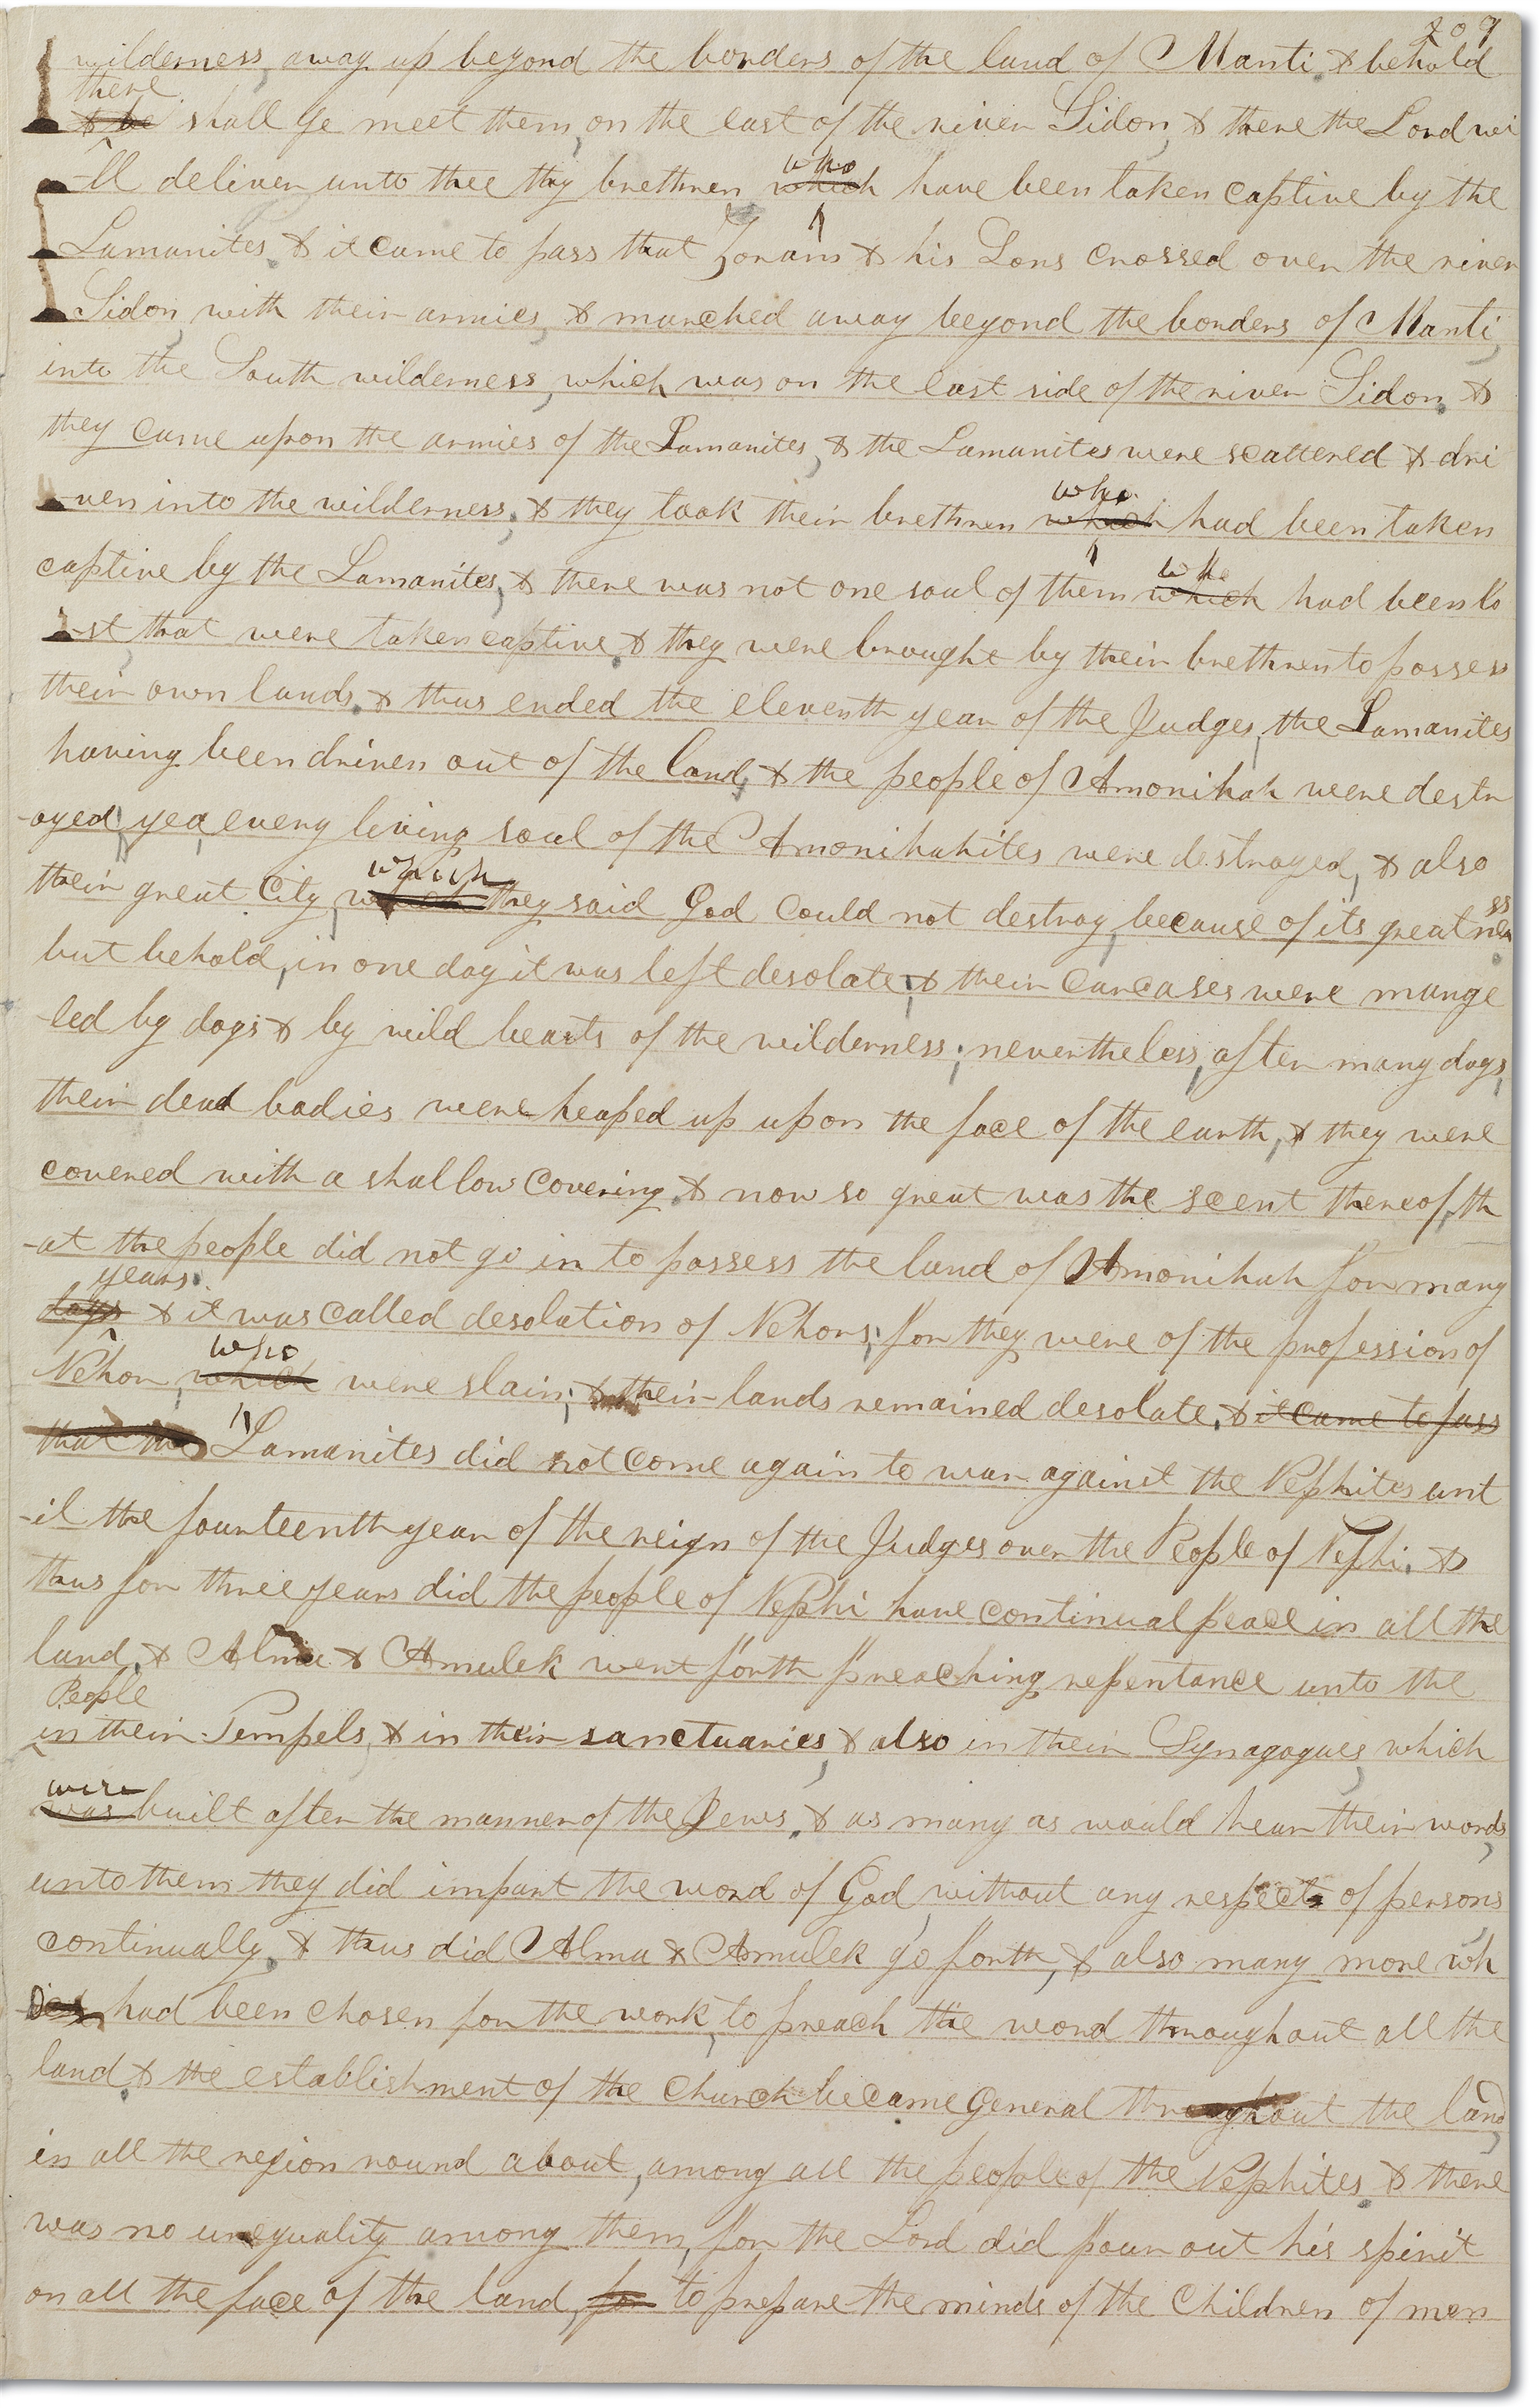 209
wilderness, away up beyond the borders of the land of Manti. & behold
there
& he shall ye meet them, on the east of the river Sidon, & there the Lord wi
-ll deliver unto thee thy brethren who which have been taken captive by the
Lamanites. & it came to pass that Zoram & his Sons crossed over the river
Sidon, with their armies, & marched away beyond the borders of Manti,
into the South wilderness, which was on the east side of the river Sidon. &
they came upon the armies of the Lamanites, & the Lamanites were scattered & dri
-ven into the wilderness, & they took their brethren who which had been taken
captive by the Lamanites, & there was not one soul of them who which had been lo
-st that were taken captive. & they were brought by their brethren to possess
their own lands. & thus ended the eleventh year of the Judges, the Lamanites
having been driven out of the land, & the people of Amonihah were destr
-oyed; yea, every living soul of the Amonihahites were destroyed, & also
their great City, which which they said God could not destroy, because of its greatness
but behold, in one day it was left desolate; & their carcases were mang
-led by dogs & by wild beasts of the wilderness; nevertheless, after many days,
their dead bodies were heaped up upon the face of the earth, & they were
covered with a shallow covering. & now so great was the scent thereof, th
-at the people did not go in to possess the land of Amonihah for many
years.
days & it was called desolation of Nehors; for they were of the profession of
Nehor, who which were slain; & their lands remained desolate. & it came to pass
that the Lamanites did not come again to war against the Nephites unt
-il the fourteenth year of the reign of the Judges over the People of Nephi. &
thus for three years did the people of Nephi have continual peace in all the
land. & Alma & Amulek went forth preaching repentance unto the
People
in their Tempels, & in their sanctuaries, & also in their Synagogues, which
were
was built after the manner of the Jews. & as many as would hear their words,
unto them they did impart the word of God, without any respect of persons
continually. & thus did Alma & Amulek go forth, & also many more wh
o had been chosen for the work, to preach the word throughout all the
land. & the establishment of the Church became General throughout the land,
in all the region round about, among all the people of the Nephites. & there
was no unequality among them, for the Lord did pour out his spirit
on all the face of the land, for to prepare the minds of the Children of men